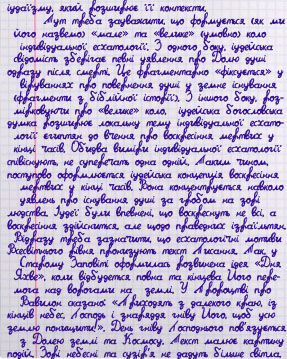 іудаїзму, який розширює її контексти.
Тут треба зауважити, що формується (як ми
його назвемо) «мале» та «велике» (умовно) коло
індивідуальної есхатології. З одного боку, іудейська
свідомість зберігає певні уявлення про Долю душі
одразу після смерті. Це фрагментарно «фіксується» у
віруваннях про повернення душі у земне існування
(фрагменти з біблійної історії). З іншого боку, роз-
мірковуючи про «велике» коло, іудейська богословська
думка розширює локальну тему індивідуальної есхато-
логії египтян до вчення про воскресіння мертвих у
кінці часів. Обидва виміри індивідуальної есхатології
співіснують, не суперечать одна одній. Таким чином,
поступово оформлюється іудейська концепція воскресіння
мертвих у кінці часів. Вона концентрується навколо
уявлень про існування душі за гробом на зорі
людства. Іудеї були впевнені, що воскреснуть не всі, а
воскресіння здійсниться, але щодо праведних ізраїльтян.
Відразу треба зазначити, що есхатологічні мотиви
Всесвітнього рівня пронизують текст Писання. Так, у
Старому Заповіті оформилась розвинена ідея «Дня
Яхве», коли відбудеться повна та кінцева Його пере-
мога над ворогами на землі. У Пророцтві про
Вавилон сказано: «Приходять з далекого краю, із
кінців небес, Господь і знаряддя гніву Його, щоб усю
землю понищити!». День гніву Господнього пов'язується
з Долею землі та Космосу. Текст малює картину
подій. Зорі небесні та сузір'я не дадуть більше світла,